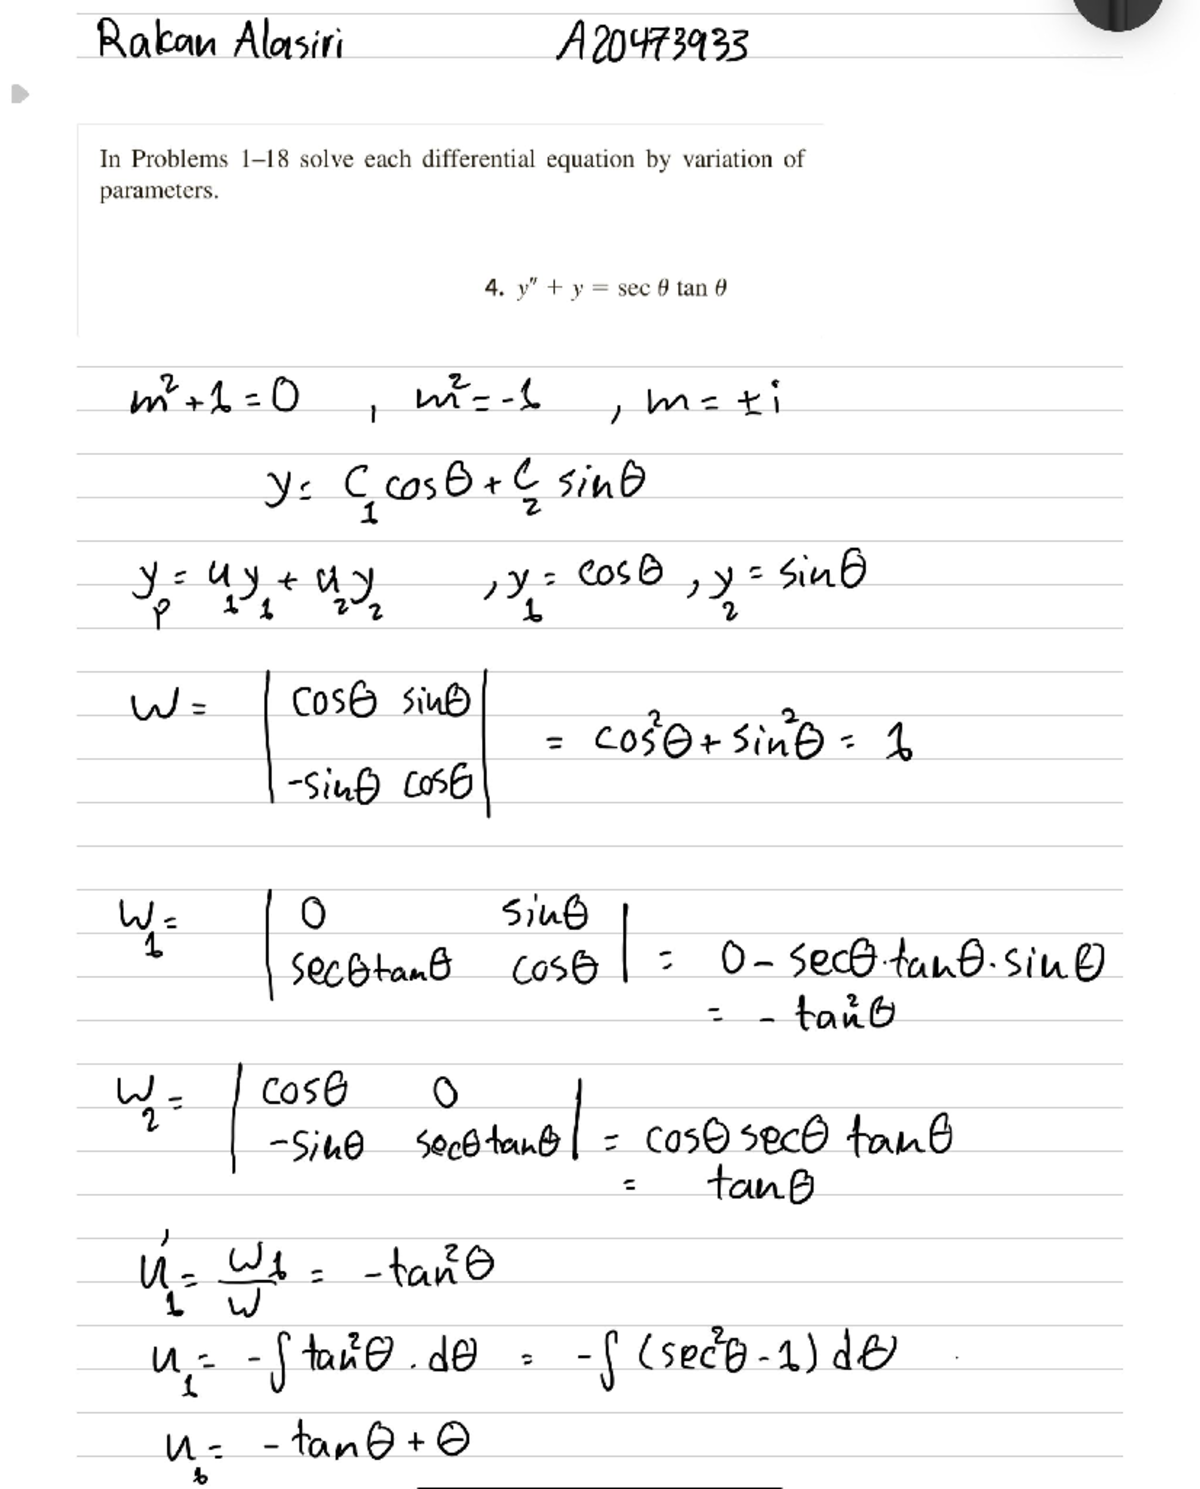 Rakan Alasiri A20473933
In Problems 1–18 solve each differential equation by variation of
parameters.
4. y″ + y = sec θ tan θ
m² + 1 = 0 , m² = -1 , m = ±i
y = C₁ cosθ + C₂ sinθ
yₚ = u₁y₁ + u₂y₂ , y₁ = cosθ , y₂ = sinθ
W = | cosθ sinθ |
= cos²θ + sin²θ = 1
| -sinθ cosθ |
W₁ = | 0 sinθ |
| secθtanθ cosθ | = 0 - secθ.tanθ.sinθ
= - tan²θ
W₂ = | cosθ 0 |
| -sinθ secθtanθ | = cosθ secθ tanθ
= tanθ
u₁′ = W₁/W = -tan²θ
u₁ = -∫ tan²θ . dθ = -∫ (sec²θ - 1) dθ
u₁ = - tanθ + θ